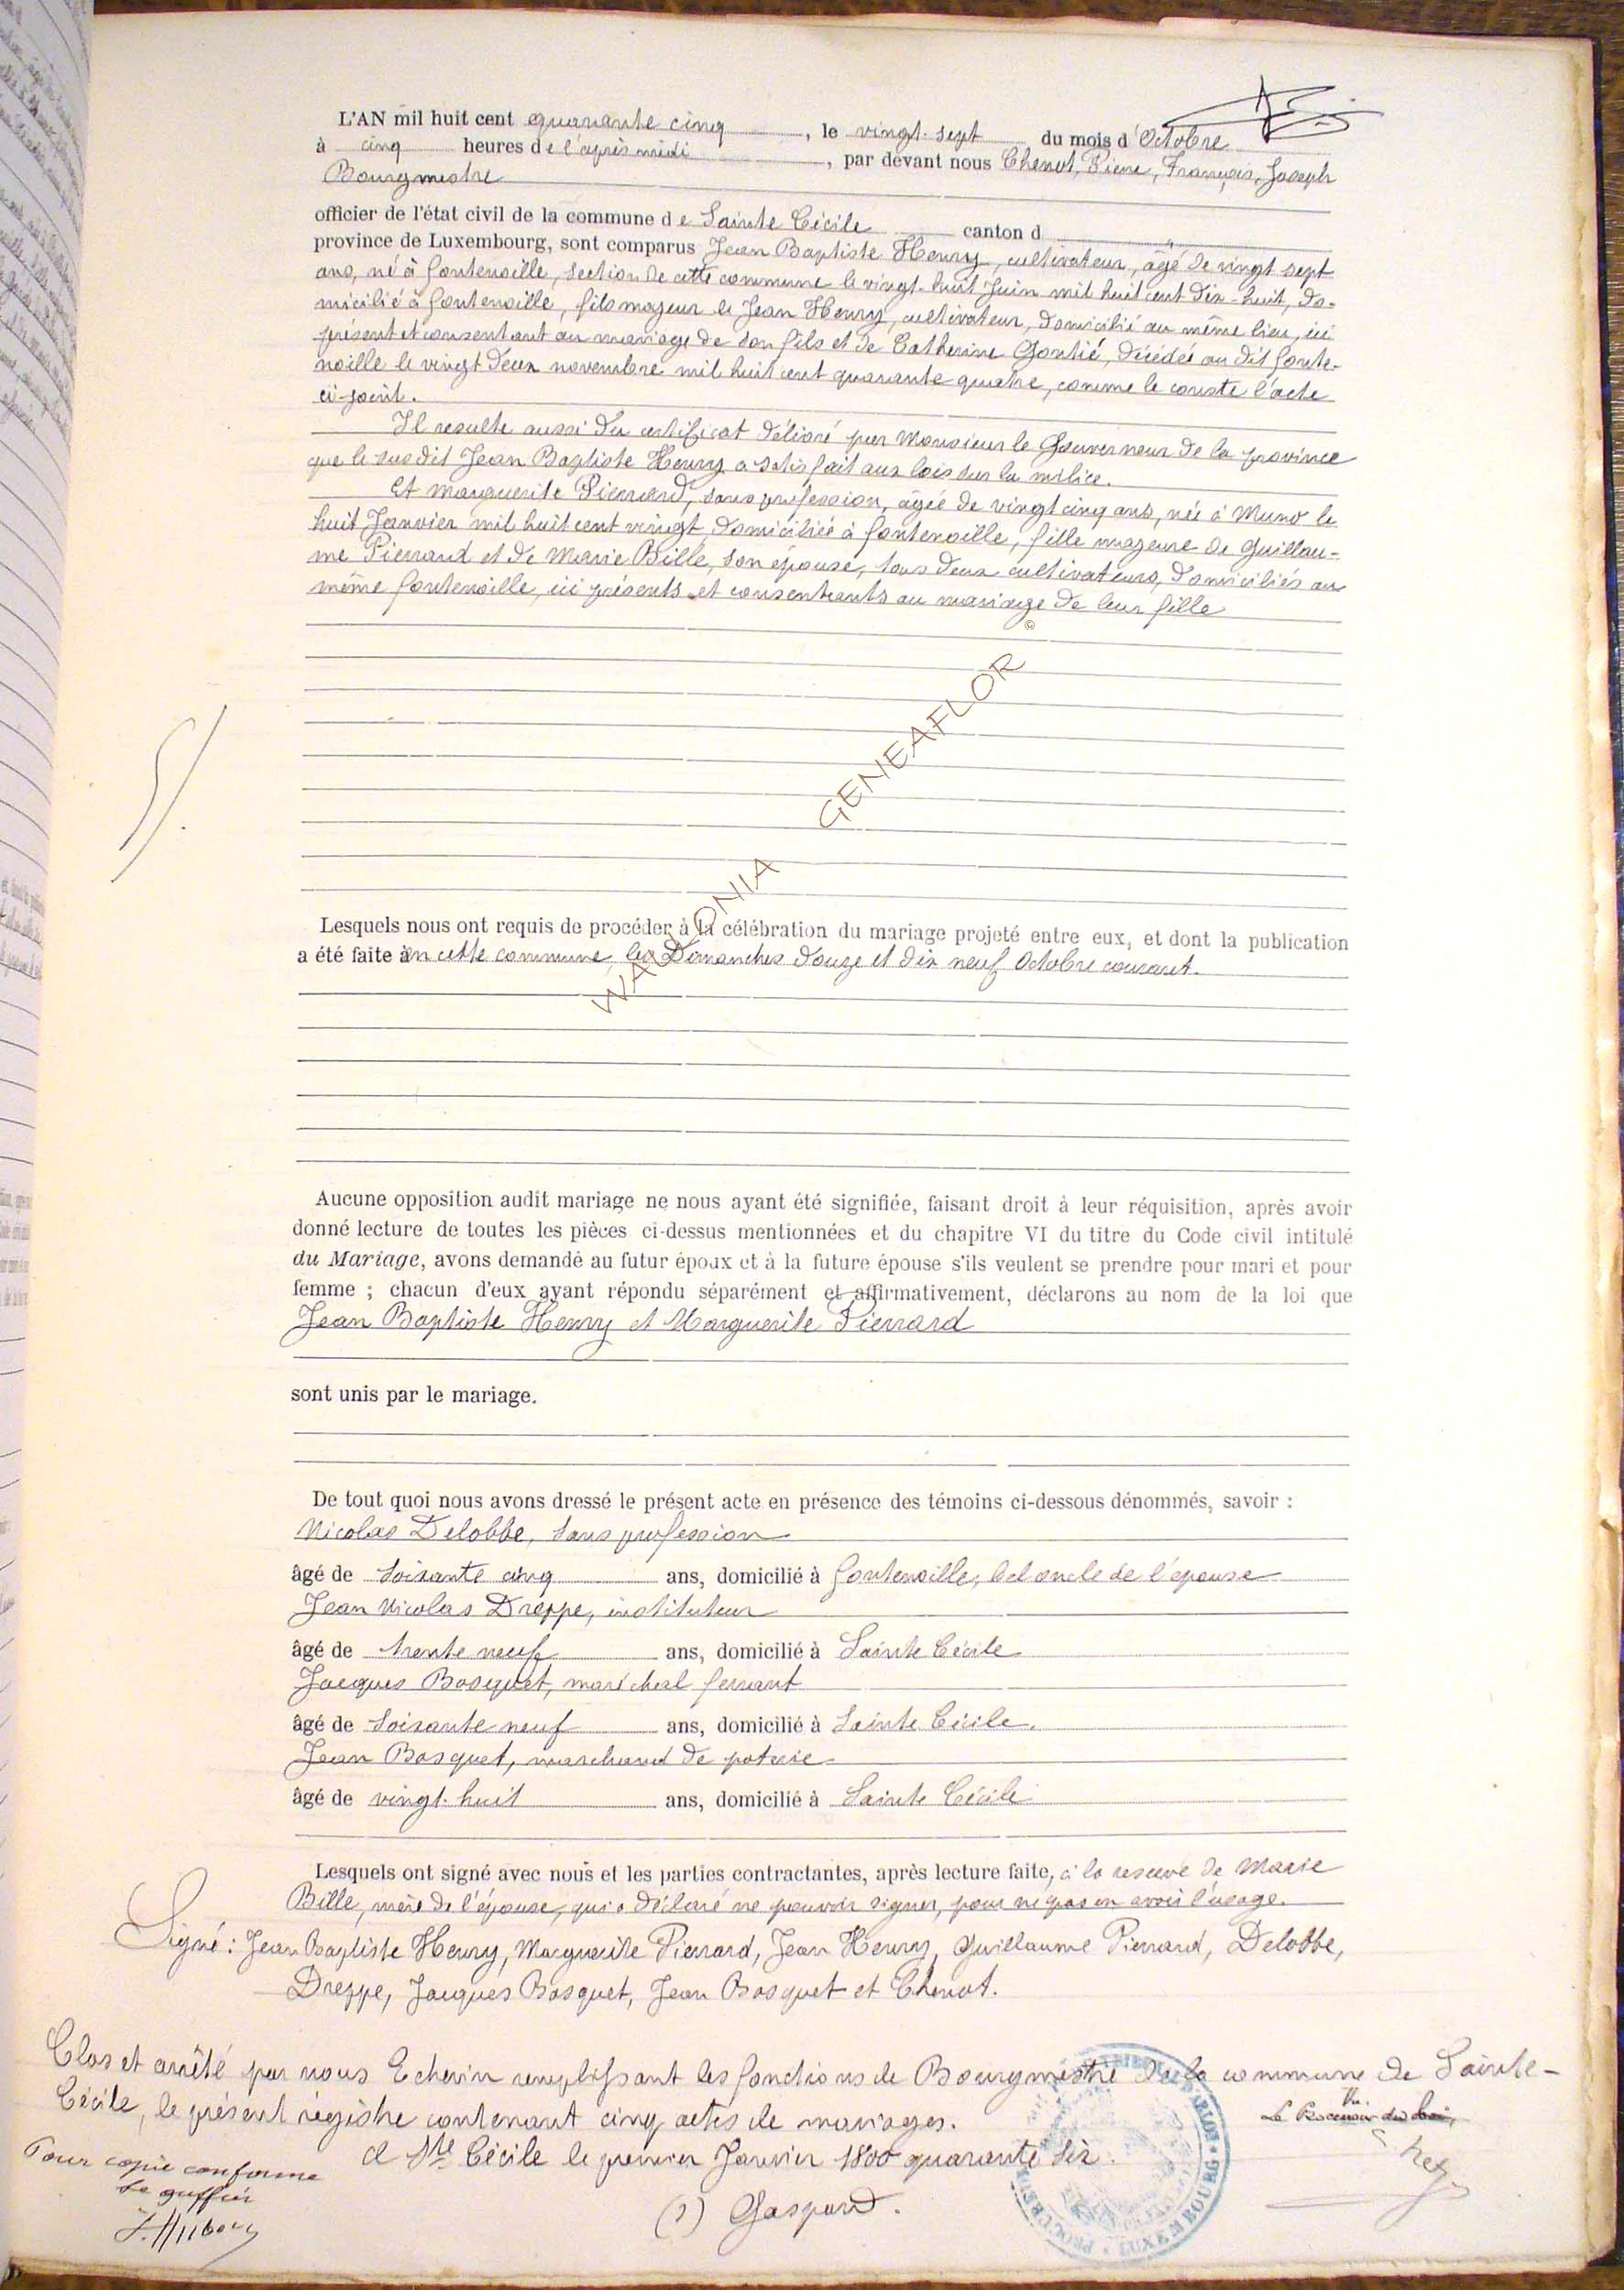 L'AN mil huit cent quarante cinq, le vingt-sept du mois d'Octobre
à cinq heures de l'après midi, par devant nous Chenot, Pierre, François, Joseph
Bourgmestre
officier de l'état civil de la commune de Sainte Cécile canton d "
province de Luxembourg, sont comparus Jean Baptiste Henry, cultivateur, âgé de vingt sept
ans, né à fontenoille, section de cette commune le vingt-huit Juin mil huit cent dix-huit, do-
micilié à fontenoille, fils majeur de Jean Henry, cultivateur, domicilié au même lieu, ici
présent et consentant au mariage de son fils et de Catherine Gontié, décédée au dit fonte-
noille le vingt deux novembre mil huit cent quarante quatre, comme le conste l'acte
ci-joint.
Il resulte aussi du certificat délivré par Monsieur le Gouverneur de la province
que le susdit Jean Baptiste Henry a satisfait aux lois sur la milice.
Et Marguerite Pierrard, sans profession, âgée de vingt cinq ans, née à Muno le
huit Janvier mil huit cent vingt, domiciliée à fontenoille, fille majeure de Guillau-
me Pierrard et de Marie Bille, son épouse, tous deux cultivateurs, domiciliés au
même fontenoille, ici présents et consentants au mariage de leur fille
©
WALLONIA GENEAFLOR
5/.
Lesquels nous ont requis de procéder à la célébration du mariage projeté entre eux, et dont la publication
a été faite à en cette commune, les Dimanches douze et dix neuf Octobre courant.
Aucune opposition audit mariage ne nous ayant été signifiée, faisant droit à leur réquisition, après avoir
donné lecture de toutes les pièces ci-dessus mentionnées et du chapitre VI du titre du Code civil intitulé
du Mariage, avons demandé au futur époux et à la future épouse s'ils veulent se prendre pour mari et pour
femme ; chacun d'eux ayant répondu séparément et affirmativement, déclarons au nom de la loi que
Jean Baptiste Henry et Marguerite Pierrard
sont unis par le mariage.
De tout quoi nous avons dressé le présent acte en présence des témoins ci-dessous dénommés, savoir :
Nicolas Delobbe, sans profession
âgé de soixante cinq ans, domicilié à fontenoille, bel oncle de l'épouse
Jean Nicolas Dreppe, instituteur
âgé de trente neuf ans, domicilié à Sainte Cécile
Jacques Bosquet, maréchal ferrant
âgé de soixante neuf ans, domicilié à Sainte Cécile.
Jean Bosquet, marchand de poterie
âgé de vingt-huit ans, domicilié à Sainte Cécile
Lesquels ont signé avec nous et les parties contractantes, après lecture faite, à la reserve de Marie
Bille, mère de l'épouse, qui a déclaré ne pouvoir signer, pour ne pas en avoir l'usage.
Signé : Jean Baptiste Henry, Marguerite Pierrard, Jean Henry, Guillaume Pierrard, Delobbe,
Dreppe, Jacques Bosquet, Jean Bosquet et Chenot.
Clos et arrêté par nous Echevin remplissant les fonctions de Bourgmestre de la commune de Sainte-
Cécile, le présent régistre contenant cinq actes de mariages.
A Ste Cécile le premier Janvier 1800 quarante six.
(s) Gaspard.
Pour copie conforme
Le greffier
Vu
Le Procureur du Roi,
LUXEMBOURG